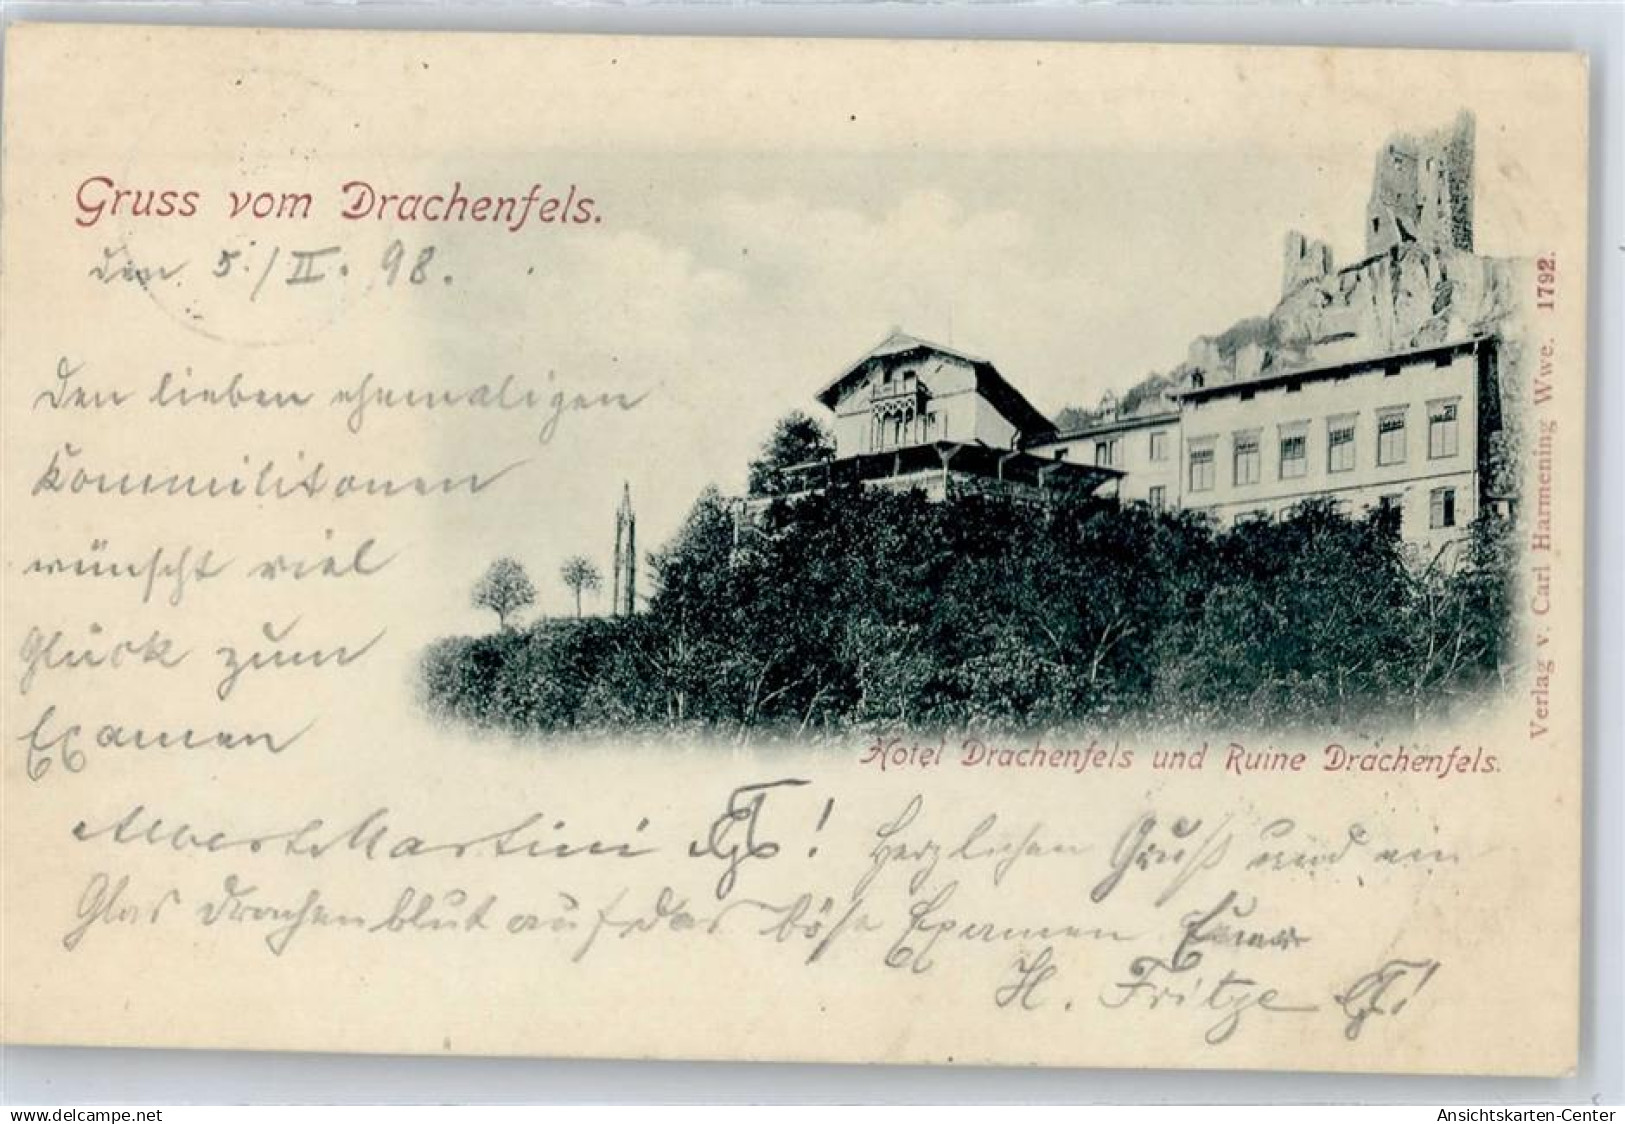 Gruss vom Drachenfels.
den 5./II. 98.
Den lieben ehemaligen
Kommilitonen
wünscht viel
Glück zum
Examen
Albert Martini
Herzlichen Gruß und ein
Glas Drachenblut auf das böse Examen
H. Fritze
Hotel Drachenfels und Ruine Drachenfels.
Verlag v. Carl Harmening Wwe. 1792.
www.delcampe.net
Ansichtskarten-Center